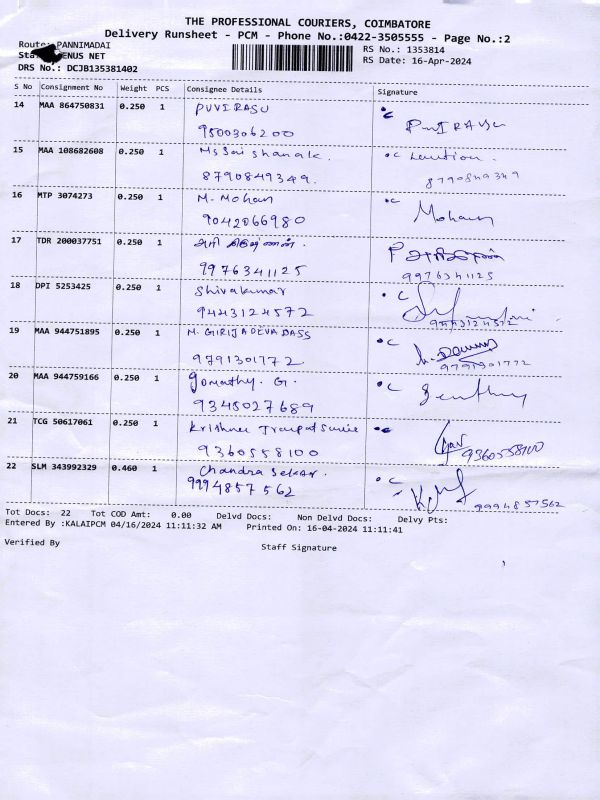 THE PROFESSIONAL COURIERS, COIMBATORE
Delivery Runsheet - PCM - Phone No.:0422-3505555 - Page No.:2
Route: PANNIMADAI
RS No.: 1353814
ENUS NET
RS Date: 16-Apr-2024
DRS No.: DCJB135381402
S No Consignment No Weight PCS Consignee Details Signature
14 MAA 864750831 0.250 1 PUVIRASU
9500306200
15 MAA 108682608 0.250 1 Ms Sai shanak.
8790849349. 8790849349
16 MTP 3074273 0.250 1 M. Mohan Mohan
9042066980
17 TDR 200037751 0.250 1
9976341125 9976341125
18 DPI 5253425 0.250 1 Shivakumar
9443124572 9443124572
19 MAA 944751895 0.250 1 M. GIRIJADEVA DASS
9791301772 9791301772
20 MAA 944759166 0.250 1 Gomathy. G.
9345027689
21 TCG 50617061 0.250 1 Krishna
9360558100 9360558100
22 SLM 343992329 0.460 1 Chandra Sekar.
9994857562 9994857562
Tot Docs: 22 Tot COD Amt: 0.00 Delvd Docs: Non Delvd Docs: Delvy Pts:
Entered By :KALAIPCM 04/16/2024 11:11:32 AM Printed On: 16-04-2024 11:11:41
Verified By
Staff Signature